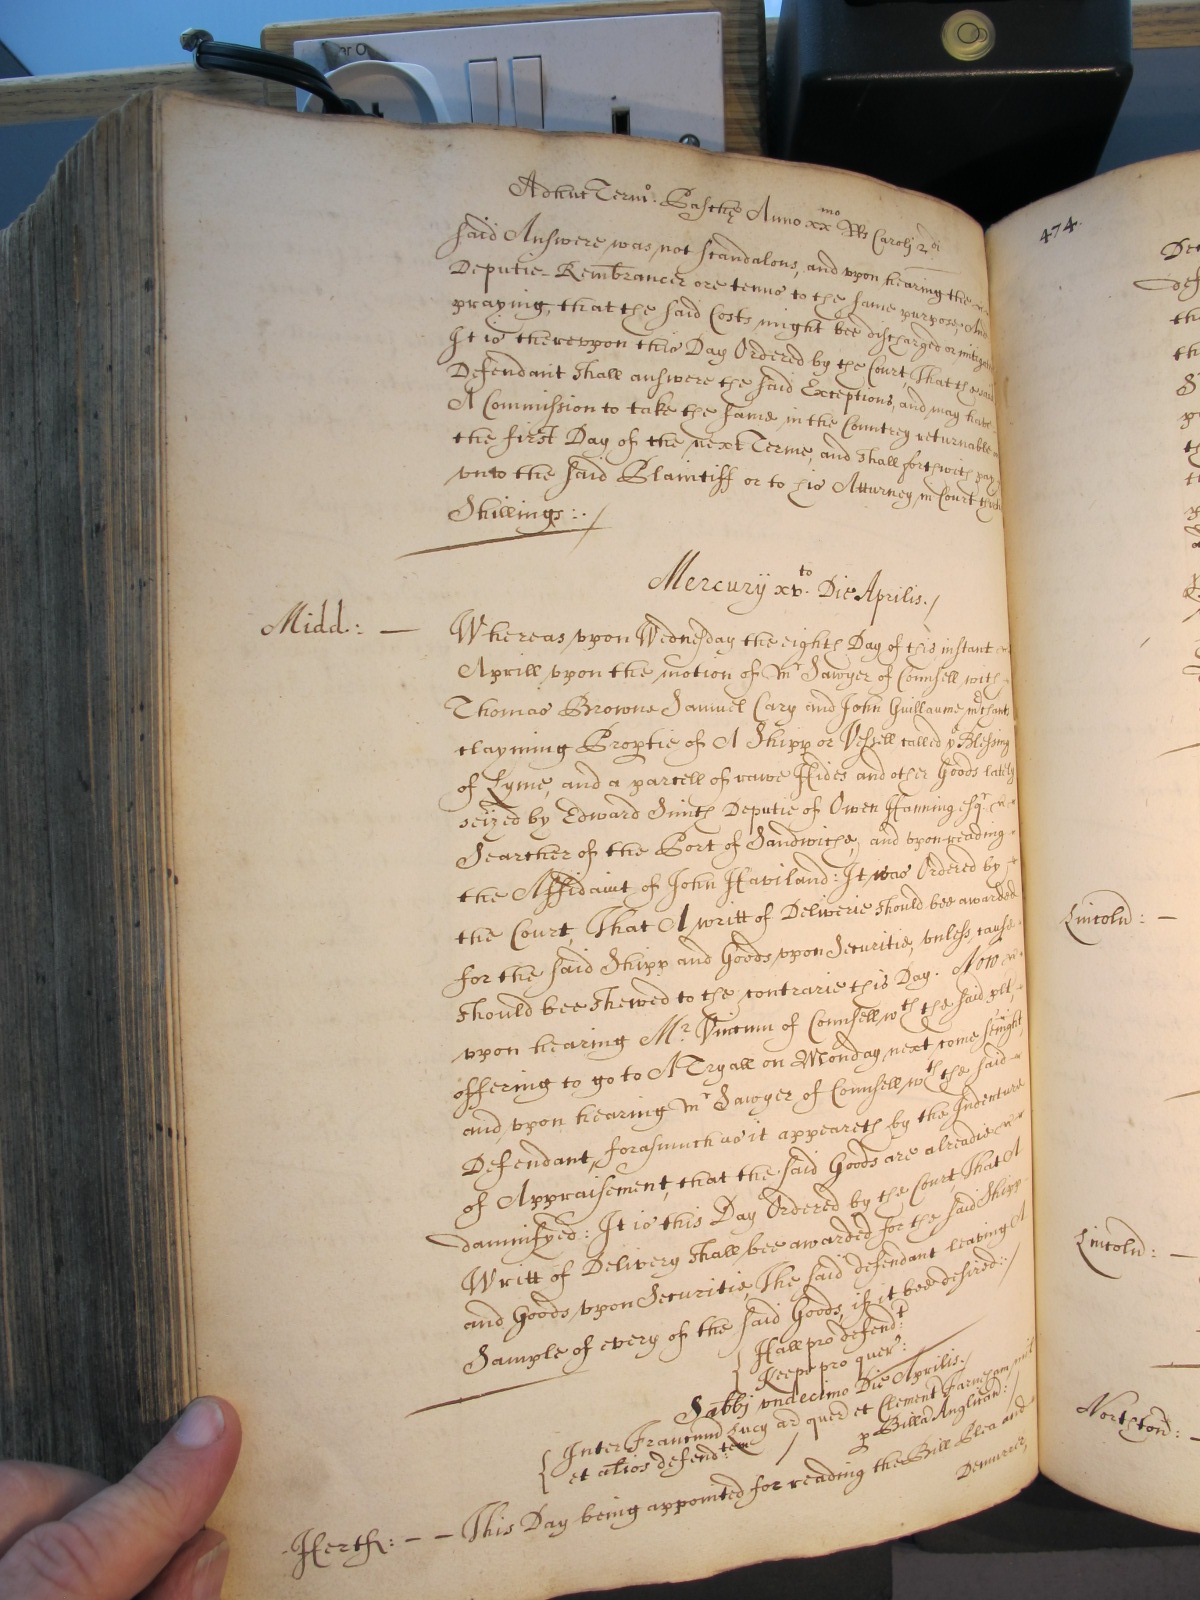 Adhuc Termi͂o: Paschę Anno xx mo Rs Caroli 2 di
said Answere was not scandalous, and vpon hearing the
Deputie Remb͂rancer ore tenus to the same purpose, And
praying, that the said Costs might bee discharged or mitigated
It is therevpon this Day Ordered by the Court, That the said
Defendant shall answere the said Exceptions, and may have
A Commission to take the same in the Countrey returnable
the first Day of the next Terme, and shall forthwith pay
vnto the said Plaintiff or to his Atturney in Court
Shillings:./
Mercurij xv to. Die Aprilis./
Midd: — Whereas vpon Wednesday the eighth Day of this instant
Aprill vpon the motion of mr Sawyer of Counsell with
Thomas Browne Samuel Cary and John Guillaume m͂chants
clayming Prop͂tie of A Shipp or Vessell called ye Blessing
of Lyme, and a parcell of rawe Hides and other Goods lately
seized by Edward Smith Deputie of Owen Hanning esqr
Searcher of the Port of Sandwiche, and vpon reading
the Affidavit of John Haviland: It was Ordered by
the Court, That A writt of Deliverie should bee awarded
for the said Shipp and Goods vpon Securitie, vnless cause
should bee shewed to the contrarie this Day. Now
vpon hearing Mr Vincent of Counsell wth the said plt,
offering to go to A Tryall on Monday next come sennight
and vpon hearing mr Sawyer of Counsell wth the said
Defendant, forasmuch as it appeareth by the Indenture
of Appraisement, that the said Goods are alreadie
damnifyed: It is this Day Ordered by the Court, That A
Writt of Delivery shall bee awarded for the said Shipp
and Goods vpon Securitie, The said defendant leaving A
Sample of every of the said Goods, if it bee desired:./
Hall pro defendt:
Keepe pro quer:
Sabb͂i vndecimo Die Aprilis./
Inter Francum͂ Lucy ar͂ quer͂ et Clement Farneham
et al͂ios defend: tem / p Billa͂ Anglican:/
Hertf: — — This Day being appointed for reading the Bill Plea and
Demurrer,
474.
Lincoln: —
Lincoln: —
North͂ton: —